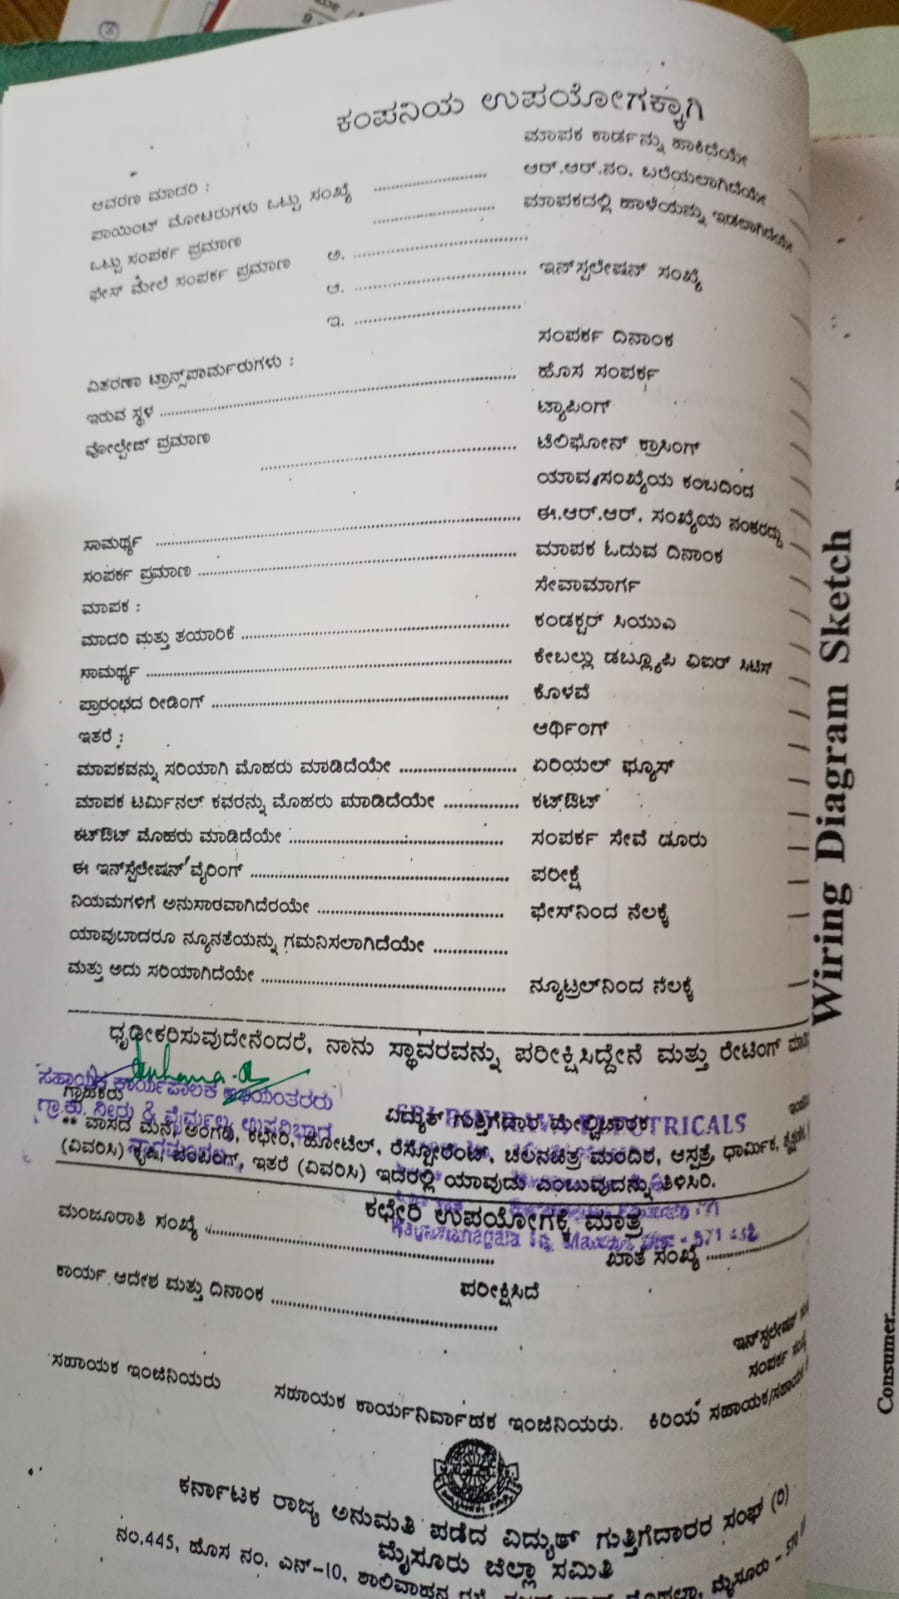 ಕಂಪನಿಯ ಉಪಯೋಗಕ್ಕಾಗಿ
ಆವರಣ ಮಾದರಿ :
ಪಾಯಿಂಟ್ ಮೋಟರುಗಳು ಒಟ್ಟು ಸಂಖ್ಯೆ
ಒಟ್ಟು ಸಂಪರ್ಕ ಪ್ರಮಾಣ
ಫೇಸ್ ಮೇಲೆ ಸಂಪರ್ಕ ಪ್ರಮಾಣ ಅ.
ಆ.
ಇ.
ವಿತರಣಾ ಟ್ರಾನ್ಸ್‌ಪಾರ್ಮರುಗಳು :
ಇರುವ ಸ್ಥಳ
ವೋಲ್ಟೇಜ್ ಪ್ರಮಾಣ
ಸಾಮರ್ಥ್ಯ
ಸಂಪರ್ಕ ಪ್ರಮಾಣ
ಮಾಪಕ :
ಮಾದರಿ ಮತ್ತು ತಯಾರಿಕೆ
ಸಾಮರ್ಥ್ಯ
ಪ್ರಾರಂಭದ ರೀಡಿಂಗ್
ಇತರೆ :
ಮಾಪಕವನ್ನು ಸರಿಯಾಗಿ ಮೊಹರು ಮಾಡಿದೆಯೇ
ಮಾಪಕ ಟರ್ಮಿನಲ್ ಕವರನ್ನು ಮೊಹರು ಮಾಡಿದೆಯೇ
ಕಟ್‌ಔಟ್ ಮೊಹರು ಮಾಡಿದೆಯೇ
ಈ ಇನ್‌ಸ್ಟಲೇಷನ್ ವೈರಿಂಗ್
ನಿಯಮಗಳಿಗೆ ಅನುಸಾರವಾಗಿದೆರಯೇ
ಯಾವುಬಾದರೂ ನ್ಯೂನತೆಯನ್ನು ಗಮನಿಸಲಾಗಿದೆಯೇ
ಮತ್ತು ಅದು ಸರಿಯಾಗಿದೆಯೇ
ಮಾಪಕ ಕಾರ್ಡನ್ನು ಹಾಕಿದೆಯೇ
ಆರ್.ಆರ್.ನಂ. ಬರೆಯಲಾಗಿದೆಯೇ
ಮಾಪಕದಲ್ಲಿ ಹಾಳೆಯನ್ನು ಇಡಲಾಗಿದೆಯೇ
ಇನ್‌ಸ್ಟಲೇಷನ್ ಸಂಖ್ಯೆ
ಸಂಪರ್ಕ ದಿನಾಂಕ
ಹೊಸ ಸಂಪರ್ಕ
ಟ್ಯಾಪಿಂಗ್
ಟೆಲಿಫೋನ್ ಕ್ರಾಸಿಂಗ್
ಯಾವ ಸಂಖ್ಯೆಯ ಕಂಬದಿಂದ
ಈ.ಆರ್.ಆರ್. ಸಂಖ್ಯೆಯ ನಂತರದ್ದು
ಮಾಪಕ ಓದುವ ದಿನಾಂಕ
ಸೇವಾಮಾರ್ಗ
ಕಂಡಕ್ಟರ್ ಸಿಯುಎ
ಕೇಬಲ್ಲು ಡಬ್ಲ್ಯೂಪಿ ವಿಐರ್ ಸಿಟಿಸ
ಕೊಳವೆ
ಆರ್ಥಿಂಗ್
ಏರಿಯಲ್ ಫ್ಯೂಸ್
ಕಟ್‌ಔಟ್
ಸಂಪರ್ಕ ಸೇವೆ ದೂರು
ಪರೀಕ್ಷೆ
ಫೇಸ್‌ನಿಂದ ನೆಲಕ್ಕೆ
ನ್ಯೂಟ್ರಲ್‌ನಿಂದ ನೆಲಕ್ಕೆ
ಧೃಡೀಕರಿಸುವುದೇನೆಂದರೆ, ನಾನು ಸ್ಥಾವರವನ್ನು ಪರೀಕ್ಷಿಸಿದ್ದೇನೆ ಮತ್ತು ರೇಟಿಂಗ್
ಸಹಾಯಕ ಕಾರ್ಯಪಾಲಕ ಅಭಿಯಂತರರು
ಗ್ರಾ.ಕು. ನೀರು & ನೈರ್ಮಲ್ಯ ಉಪವಿಭಾಗ
ಗ್ರಾಹಕರು ವಿದ್ಯುತ್ ಗುತ್ತಿಗೆದಾರ ಮೇಲ್ವಿಚಾರಕ
** ವಾಸದ ಮನೆ, ಅಂಗಡಿ, ಕಛೇರಿ, ಹೋಟೆಲ್, ರೆಸ್ಟೋರೆಂಟ್, ಚಲನಚಿತ್ರ ಮಂದಿರ, ಆಸ್ಪತ್ರೆ, ಧಾರ್ಮಿಕ,
(ವಿವರಿಸಿ) ಕೃಷಿ ಪಂಪಿಂಗ್, ಇತರೆ (ವಿವರಿಸಿ) ಇದರಲ್ಲಿ ಯಾವುದು ಎಂಬುವುದನ್ನು ತಿಳಿಸಿರಿ.
ಕಛೇರಿ ಉಪಯೋಗಕ್ಕೆ ಮಾತ್ರ
ಮಂಜೂರಾತಿ ಸಂಖ್ಯೆ ಖಾತೆ ಸಂಖ್ಯೆ
ಕಾರ್ಯ ಆದೇಶ ಮತ್ತು ದಿನಾಂಕ ಪರೀಕ್ಷಿಸಿದೆ
ಇನ್‌ಸ್ಟಲೇಷನ್
ಸಂಪರ್ಕ
ಸಹಾಯಕ ಇಂಜಿನಿಯರು ಸಹಾಯಕ ಕಾರ್ಯನಿರ್ವಾಹಕ ಇಂಜಿನಿಯರು. ಕಿರಿಯ ಸಹಾಯಕ/ಸಹಾಯಕ
ಕರ್ನಾಟಕ ರಾಜ್ಯ ಅನುಮತಿ ಪಡೆದ ವಿದ್ಯುತ್ ಗುತ್ತಿಗೆದಾರರ ಸಂಘ (ರಿ)
ಮೈಸೂರು ಜಿಲ್ಲಾ ಸಮಿತಿ
ನಂ.445, ಹೊಸ ನಂ. ಎನ್-10, ಶಾಲಿವಾಹನ ರಸ್ತೆ, ಮೈಸೂರು -
Wiring Diagram Sketch
Consumer